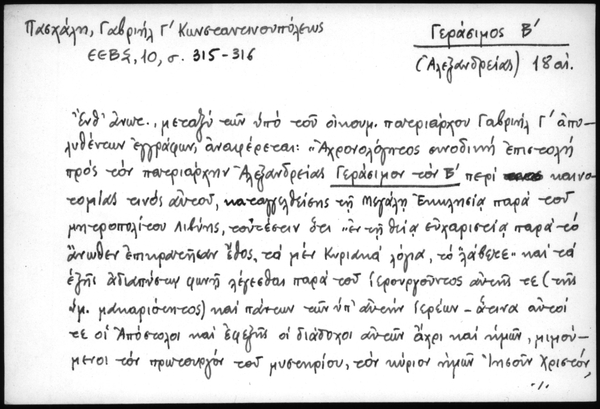 Πασχάλη, Γαβριήλ Γ' Κωνσταντινουπόλεως
ΕΕΒΣ, 10, σ. 315-316
Γεράσιμος Β'
(Ἀλεξανδρείας) 18 αἰ.
Ἔνθ' ἀνωτ., μεταξύ τῶν ὑπό τοῦ οἰκουμ. πατριάρχου Γαβριήλ Γ' ἀπο-
λυθέντων ἐγγράφων, ἀναφέρεται: "Ἀχρονολόγητος συνοδική ἐπιστολή
πρός τόν πατριάρχην Ἀλεξανδρείας Γεράσιμον τόν Β' περί καινο-
τομίας τινός αὐτοῦ, καταγγελθείσης τῇ Μεγάλῃ Ἐκκλησίᾳ παρά τοῦ
μητροπολίτου Λιβύης, τοὐτέστιν ὅτι "ἐν τῇ θείᾳ εὐχαριστίᾳ παρά τό
ἄνωθεν ἐπικρατῆσαν ἔθος, τά μέν Κυριακά λόγια, τό "λάβετε" καί τά
ἑξῆς ἀδιαπτώτῳ φωνῇ λέγεσθαι παρά τοῦ ἱερουργοῦντος αὐτῆς τε (τῆς
ὑμ. μακαριότητος) καί πάντων τῶν ὑπ' αὐτήν ἱερέων - ἅτινα αὐτοί
τε οἱ Ἀπόστολοι καί ἐφεξῆς οἱ διάδοχοι αὐτῶν ἄχρι καί ἡμῶν, μιμού-
μενοι τόν πρωτουργόν τοῦ μυστηρίου, τόν κύριον ἡμῶν Ἰησοῦν Χριστόν,
./.